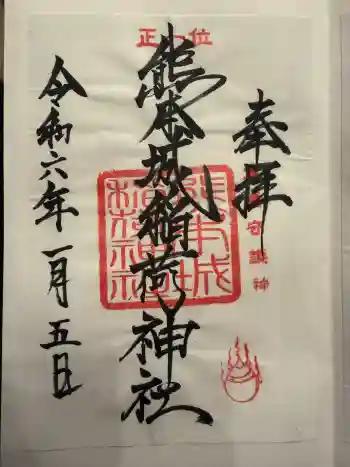 奉拝
正一位
熊本城稲荷神社
熊本城稲荷神社
守護神
令和六年一月五日